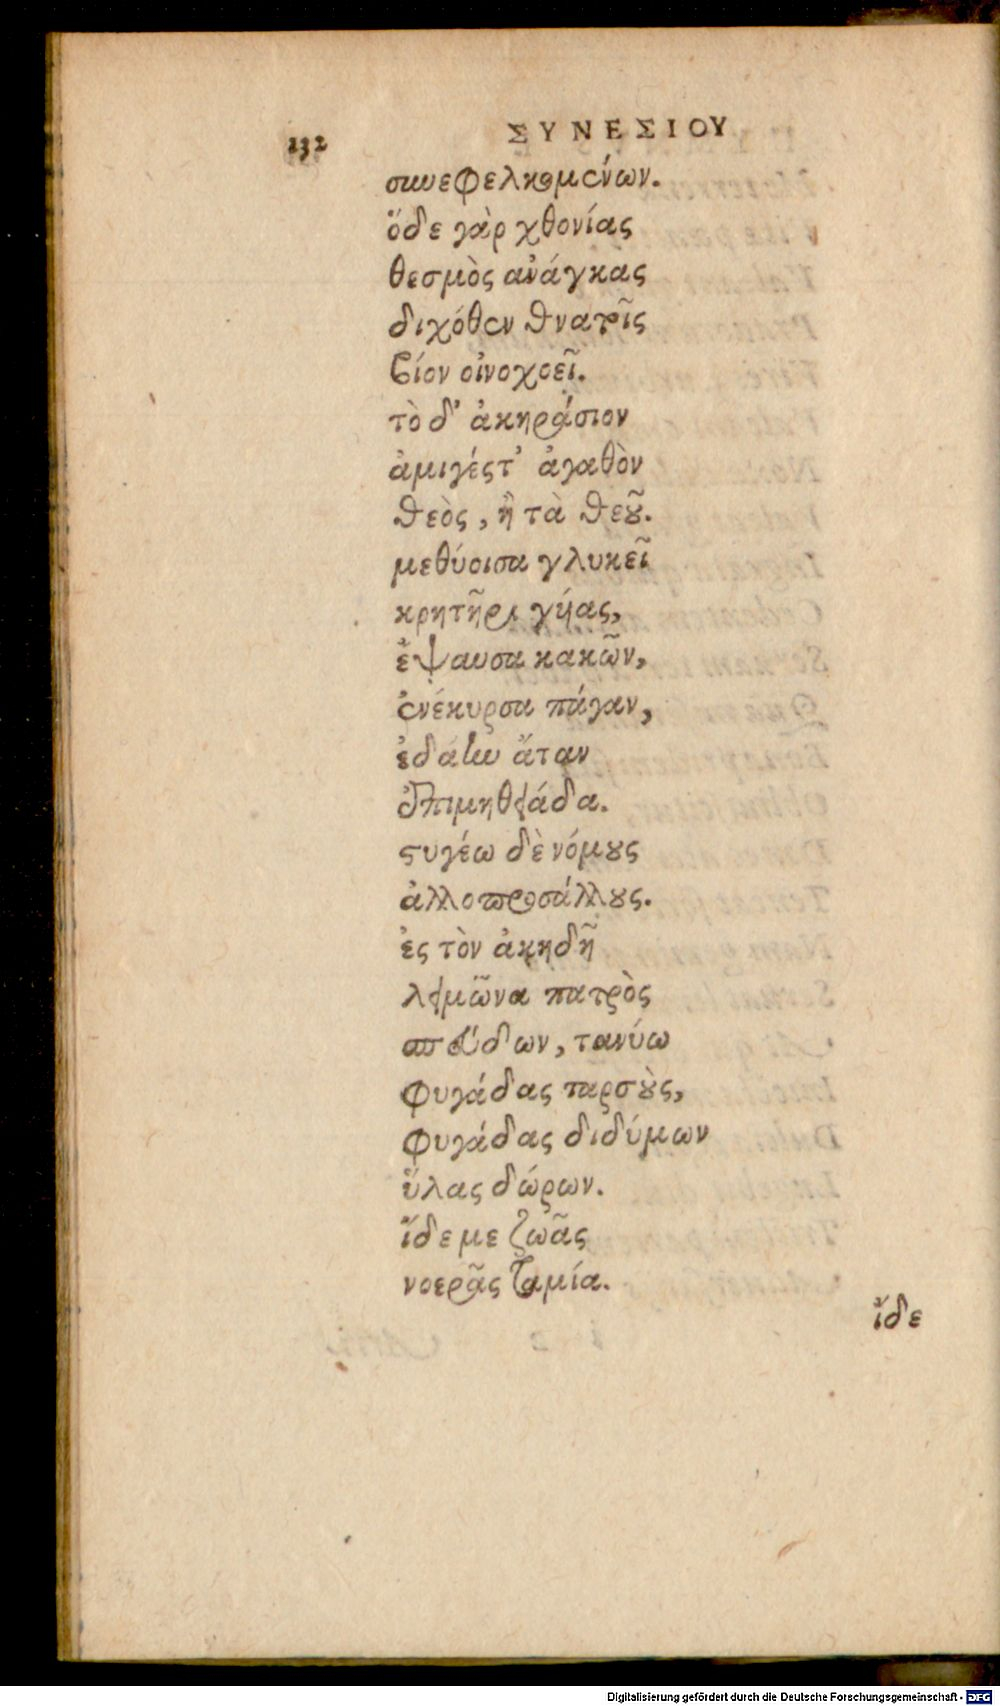 132 ΣΥΝΕΣΙΟΥ
συνεφελκομένων.
ὅδε γὰρ χθονίας
θεσμὸς ἀνάγκας
διχόθεν θνατοῖς
βίον οἰνοχοεῖ.
τὸ δ' ἀκηράσιον
ἀμιγές τ' ἀγαθὸν
θεὸς, ἢ τὰ θεοῦ.
μεθύοισα γλυκεῖ
κρητῆρι γύας,
ἔψαυσα κακῶν,
ἐνέκυρσα πάγαν,
ἐδάην ἄταν
ἐπιμηθειάδα.
στυγέω δὲ νόμους
ἀλλοπροσάλλους.
ἐς τὸν ἀκηδῆ
λειμῶνα πατρὸς
σπεύδων, τανύω
φυγάδας ταρσοὺς,
φυγάδας διδύμων
ὕλας δώρων.
ἴδε με ζωᾶς
νοερᾶς ταμία.
ἴδε
Digitalisierung gefördert durch die Deutsche Forschungsgemeinschaft - DFG